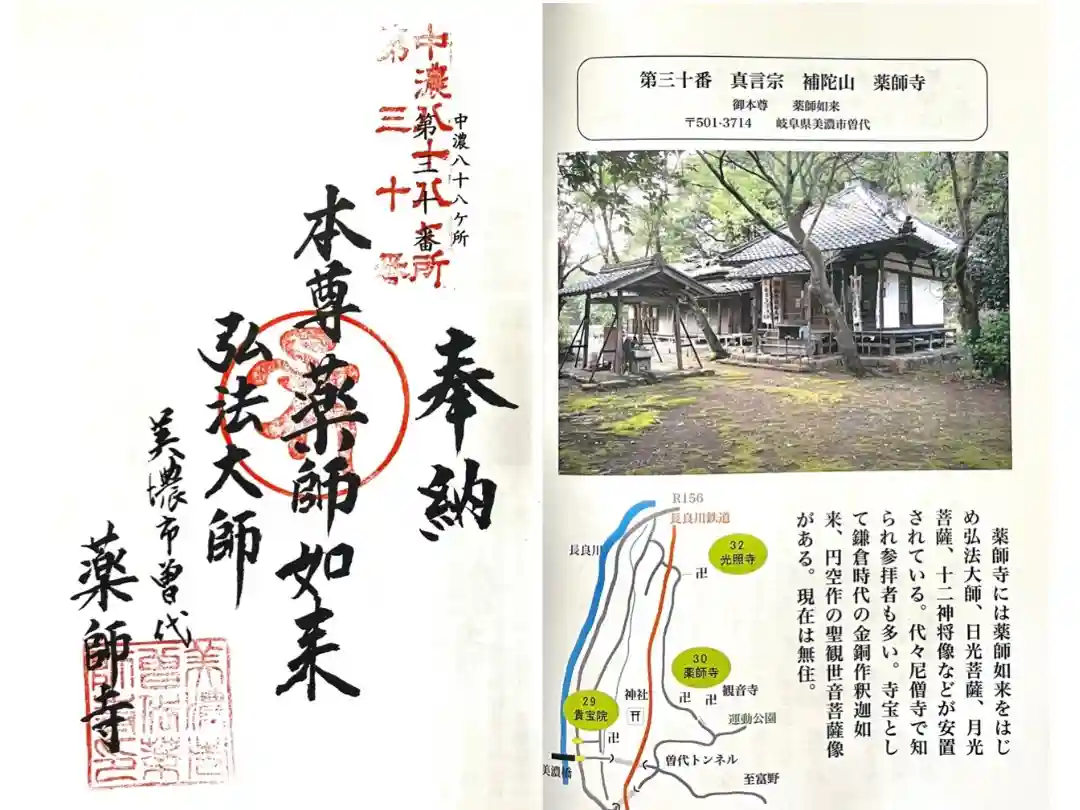 中濃八十八ヶ所
第三十番
中濃八十八ヶ所
第三十番
奉納
本尊薬師如来
弘法大師
美濃市曽代
薬師寺
第三十番 真言宗 補陀山 薬師寺
御本尊 薬師如来
〒501-3714 岐阜県美濃市曽代
R156
長良川鉄道
長良川
32
光照寺
卍
30
薬師寺
卍 卍 観音寺
神社
運動公園
29
貴宝院
卍
曽代トンネル
美濃橋
至富野
薬師寺には薬師如来をはじ
め弘法大師、日光菩薩、月光
菩薩、十二神将像などが安置
されている。代々尼僧寺で知
られ参拝者も多い。寺宝とし
て鎌倉時代の金銅作釈迦如
来、円空作の聖観世音菩薩像
がある。現在は無住。